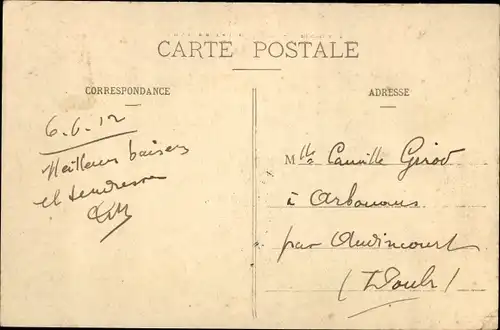 CARTE POSTALE
CORRESPONDANCE
6.6.12
Meilleurs baisers
et tendresses
ADRESSE
Mlle Camille Girod
à Arbouans
par Audincourt
(Doubs)